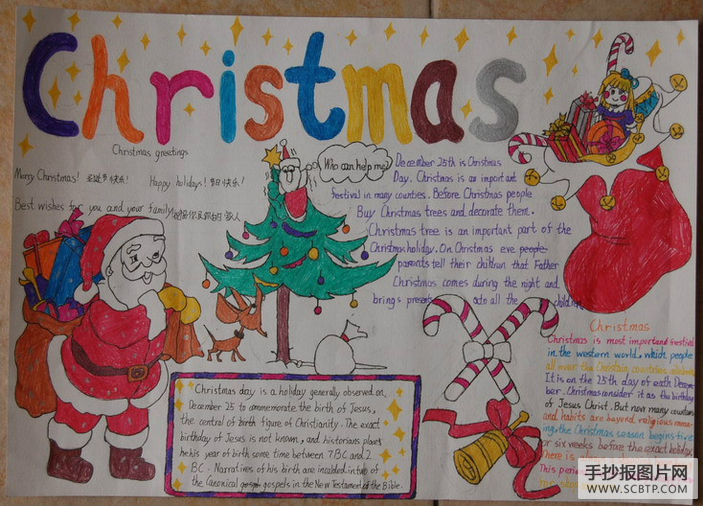 Christmas
Christmas greetings
Merry Christmas! 圣诞节快乐! Happy holidays! 节日快乐!
Best wishes for you and your family
Who can help me?
December 25th is Christmas
Day. Christmas is an important
festival in many countries. Before Christmas people
Buy Christmas trees and decorate them.
Christmas tree is an important part of the
Christmas holiday. On Christmas eve people
parents tell their children that Father
Christmas comes during the night and
brings presents to all the children
Christmas day is a holiday generally observed on
December 25 to ommemorate the birth of Jesus,
the central of birth figure of Christianity. The exact
birthday of Jesus is not known, and historians place
his year of birth some time between 7 BC and 2
BC. Narratives of his birth are included in two of
the Canonical gospels in the New Testament of the Bible.
Christmas
Christmas is most important festival
in the western world, which people
all over the Christian countries celebrate
It is on the 25th day of each Decem
ber. Christmas consider it as the birthday
of Jesus Christ. But now many countries
and habits are beyond religious mea
ning, the Christmas season begins five
or six weeks before the exact holiday
There is
This peri
手抄报图片网
WWW.SCBTP.COM